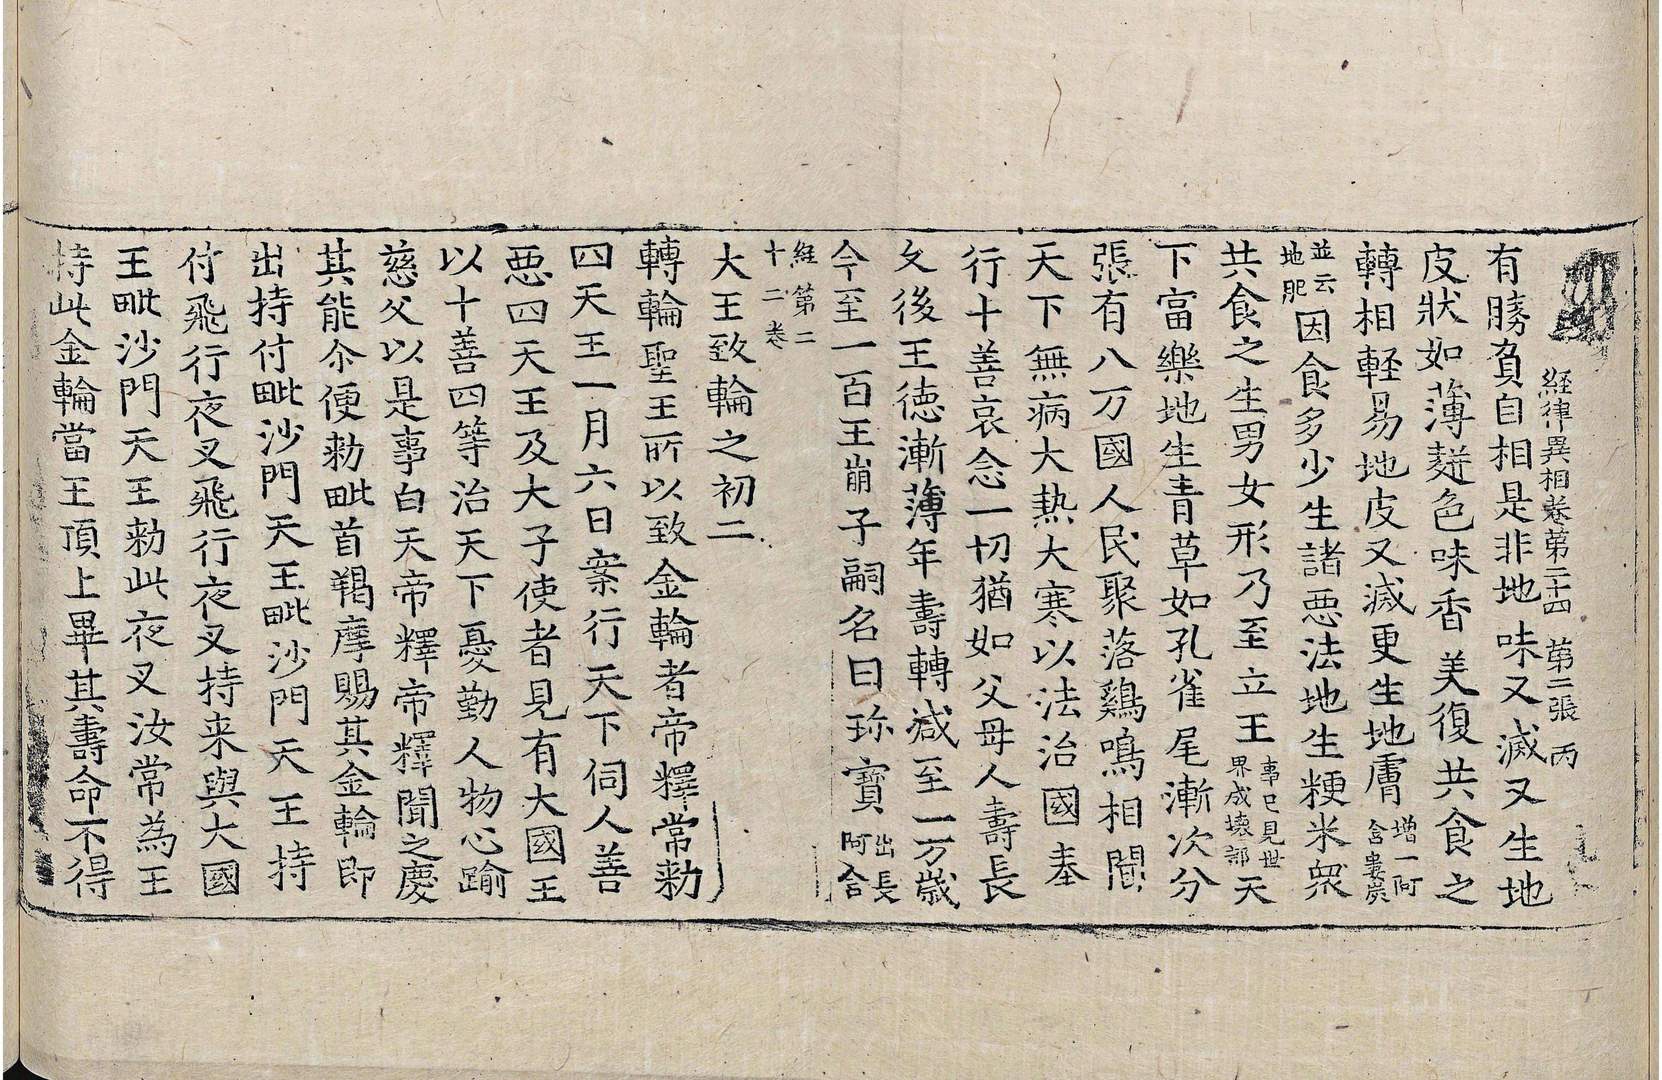 経律異相卷第二十四 第二張 丙
有勝負自相是非地味又滅又生地
皮狀如薄䴵色味香美復共食之
轉相軽易地皮又滅更生地膚增一阿含婁炭
並云地肥因食多少生諸惡法地生粳米衆
共食之生男女形乃至立王事已見世界成壞部天
下富樂地生青草如孔雀尾漸次分
張有八万國人民聚落鷄鳴相聞
天下無病大熱大寒以法治國奉
行十善哀念一切猶如父母人壽長
久後王徳漸薄年壽轉減至一万歲
今至一百王崩子嗣名曰珎寶出長阿含
経第二十二卷
大王致輪之初二
轉輪聖王所以致金輪者帝釋常勑
四天王一月六日案行天下伺人善
惡四天王及大子使者見有大國王
以十善四等治天下憂勤人物心踰
慈父以是事白天帝釋帝釋聞之慶
其能尒便勑毗首羯摩賜其金輪即
出持付毗沙門天王毗沙門天王持
付飛行夜叉飛行夜叉持来與大國
王毗沙門天王勑此夜叉汝常為王
持此金輪當王頂上畢其壽命不得